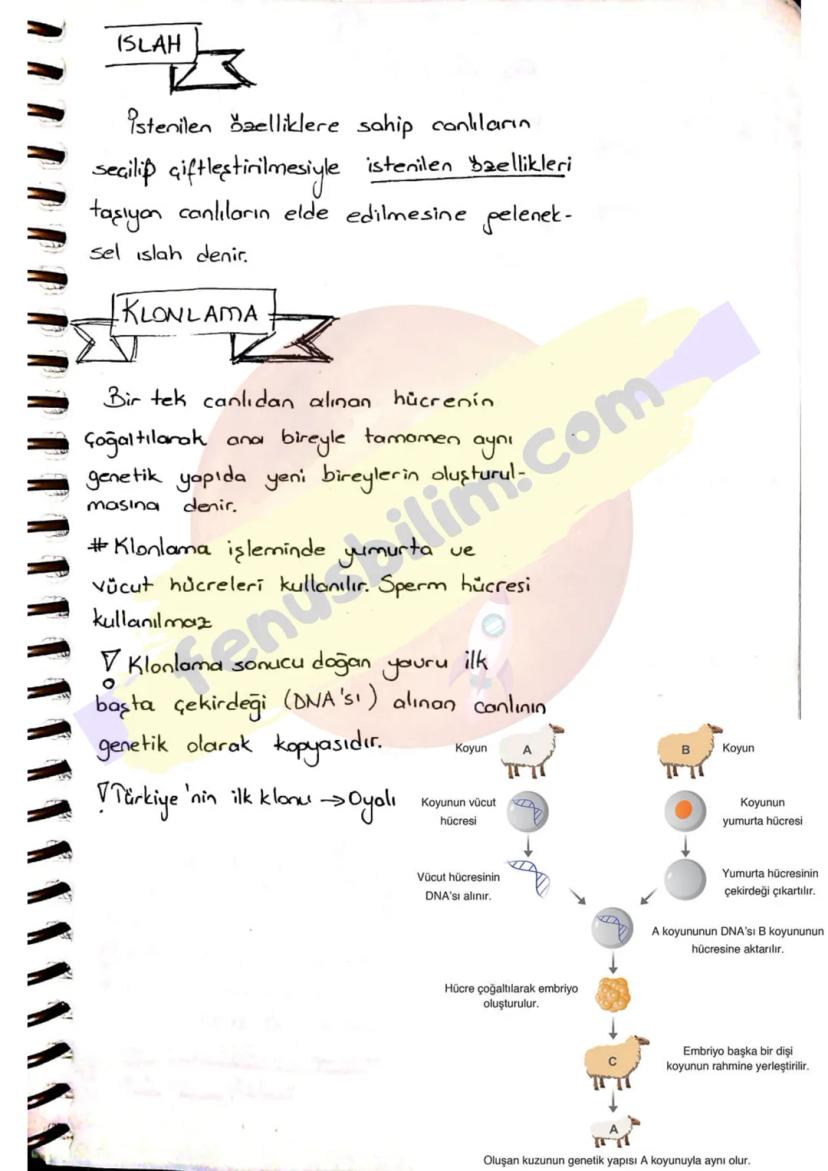 ISLAH
İstenilen özelliklere sahip canlıların
seçilip çiftleştirilmesiyle istenilen özellikleri
taşıyan canlıların elde edilmesine gelenek-
sel ıslah denir.
KLONLAMA
Bir tek canlıdan alınan hücrenin
çoğaltılarak ana bireyle tamamen aynı
genetik yapıda yeni bireylerin oluşturul-
masına denir.
# Klonlama işleminde yumurta ve
vücut hücreleri kullanılır. Sperm hücresi
kullanılmaz
Klonlama sonucu doğan yavru ilk
başta çekirdeği (DNA'sı) alınan canlının
genetik olarak kopyasıdır.
Türkiye'nin ilk klonu → Oyalı
fenusbilim.com
Koyun A
B Koyun
Koyunun vücut
hücresi
Koyunun
yumurta hücresi
Vücut hücresinin
DNA'sı alınır.
Yumurta hücresinin
çekirdeği çıkartılır.
A koyununun DNA'sı B koyununun
hücresine aktarılır.
Hücre çoğaltılarak embriyo
oluşturulur.
C
Embriyo başka bir dişi
koyunun rahmine yerleştirilir.
A
Oluşan kuzunun genetik yapısı A koyunuyla aynı olur.